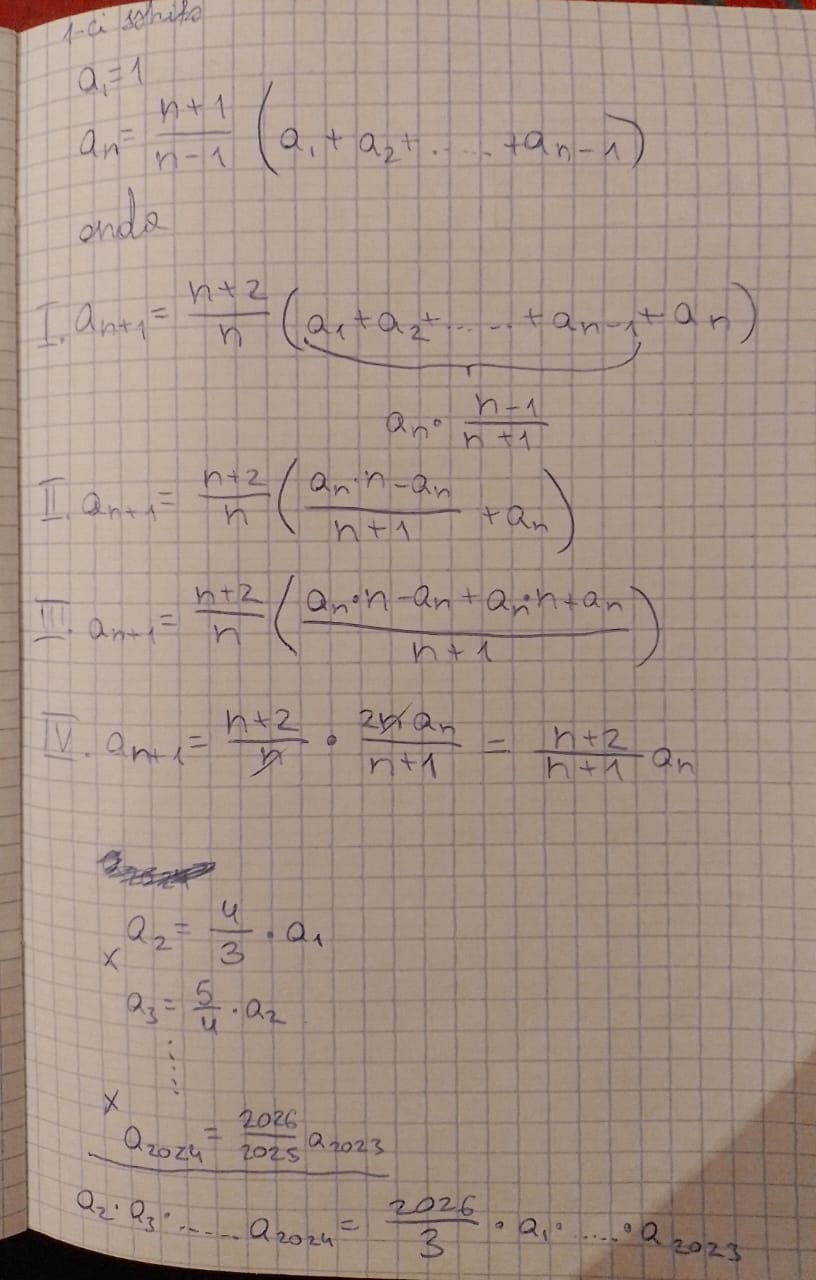 1-ci səhifə
a₁=1
aₙ= \frac{n+1}{n-1} (a₁ + a₂ + ..... + aₙ₋₁)
onda
I. aₙ₊₁= \frac{n+2}{n} (a₁ + a₂ + ..... + aₙ₋₁ + aₙ)
aₙ · \frac{n-1}{n+1}
II. aₙ₊₁= \frac{n+2}{n} (\frac{aₙ·n - aₙ}{n+1} + aₙ)
III. aₙ₊₁= \frac{n+2}{n} (\frac{aₙ·n - aₙ + aₙ·n + aₙ}{n+1})
IV. aₙ₊₁= \frac{n+2}{n} · \frac{2n aₙ}{n+1} = \frac{n+2}{n+1} aₙ
a₂= \frac{4}{3} · a₁
×
a₃= \frac{5}{4} · a₂
⋮
×
a₂₀₂₄= \frac{2026}{2025} a₂₀₂₃
a₂ · a₃ · ...... a₂₀₂₄= \frac{2026}{3} · a₁ · ..... · a₂₀₂₃